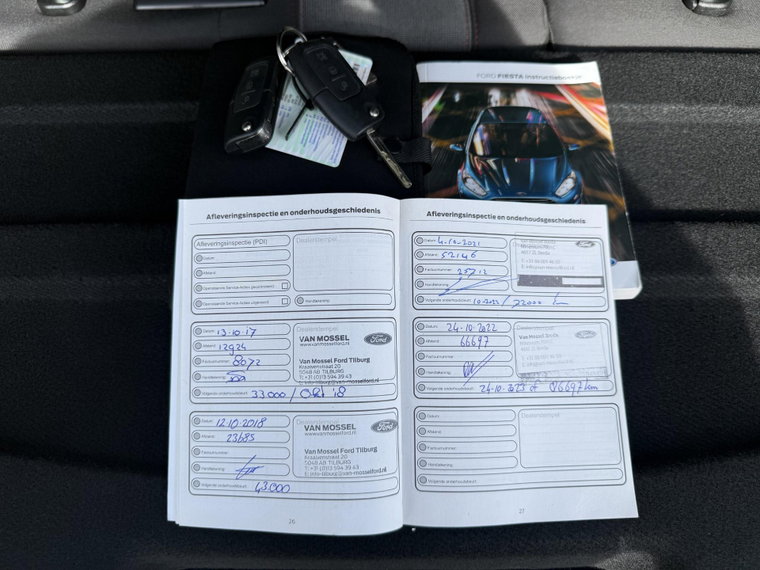 FORD FIESTA Instructieboekje
Afleveringsinspectie en onderhoudsgeschiedenis
Afleveringsinspectie (PDI)
Datum:
Afstand:
Factuurnummer:
Openstaande Service-Acties gecontroleerd
Openstaande Service-Acties uitgevoerd
Dealerstempel:
Handtekening:
Datum: 13-10-17
Afstand: 12924
Factuurnummer: 8072
Handtekening:
Volgende onderhoudsbeurt: 33000 / Okt '18
Dealerstempel:
VAN MOSSEL
www.vanmosselford.nl
Ford
Van Mossel Ford Tilburg
Kraaivenstraat 20
5048 AB TILBURG
T: +31 (0)13 594 39 43
E: info-tilburg@vanmosselford.nl
Datum: 12 10 2018
Afstand: 23685
Factuurnummer:
Handtekening:
Volgende onderhoudsbeurt: 43.000
Dealerstempel:
VAN MOSSEL
www.vanmosselford.nl
Ford
Van Mossel Ford Tilburg
Kraaivenstraat 20
5048 AB TILBURG
T: +31 (0)13 594 39 43
E: info-tilburg@van-mosselford.nl
26
Afleveringsinspectie en onderhoudsgeschiedenis
Datum: 4-10-2021
Afstand: 52146
Factuurnummer: 25712
Handtekening:
Volgende onderhoudsbeurt: 10-2022 / 72000 km
Ford
Datum: 24-10-2022
Afstand: 66697
Factuurnummer:
Handtekening:
Volgende onderhoudsbeurt: 24-10-2023 of 86697 km
Dealerstempel:
Van Mossel Breda
Ford
Datum:
Afstand:
Factuurnummer:
Handtekening:
Volgende onderhoudsbeurt:
Dealerstempel:
27